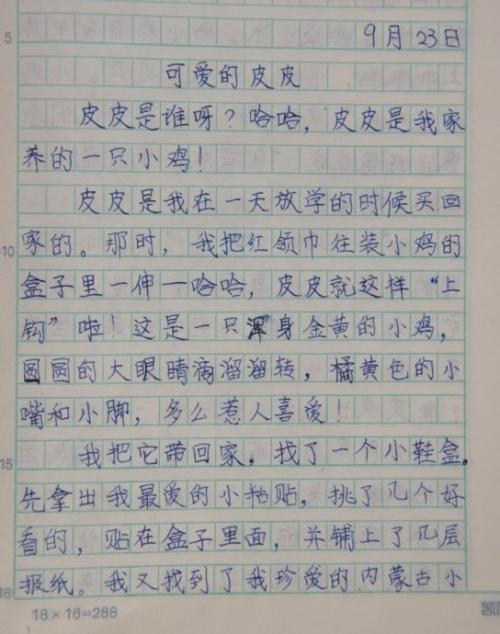 9月23日
5
可爱的皮皮
皮皮是谁呀？哈哈，皮皮是我家
养的一只小鸡！
皮皮是我在一天放学的时候买回
10 家的。那时，我把红领巾往装小鸡的
盒子里一伸一哈哈，皮皮就这样“上
钩”啦！这是一只浑身金黄的小鸡，
圆圆的大眼睛滴溜溜转，橘黄色的小
嘴和小脚，多么惹人喜爱！
15 我把它带回家。找了一个小鞋盒。
先拿出我最爱的小粘贴，挑了几个好
看的，贴在盒子里面，并铺上了几层
18 报纸。我又找到了我珍爱的内蒙古小
18×16=288